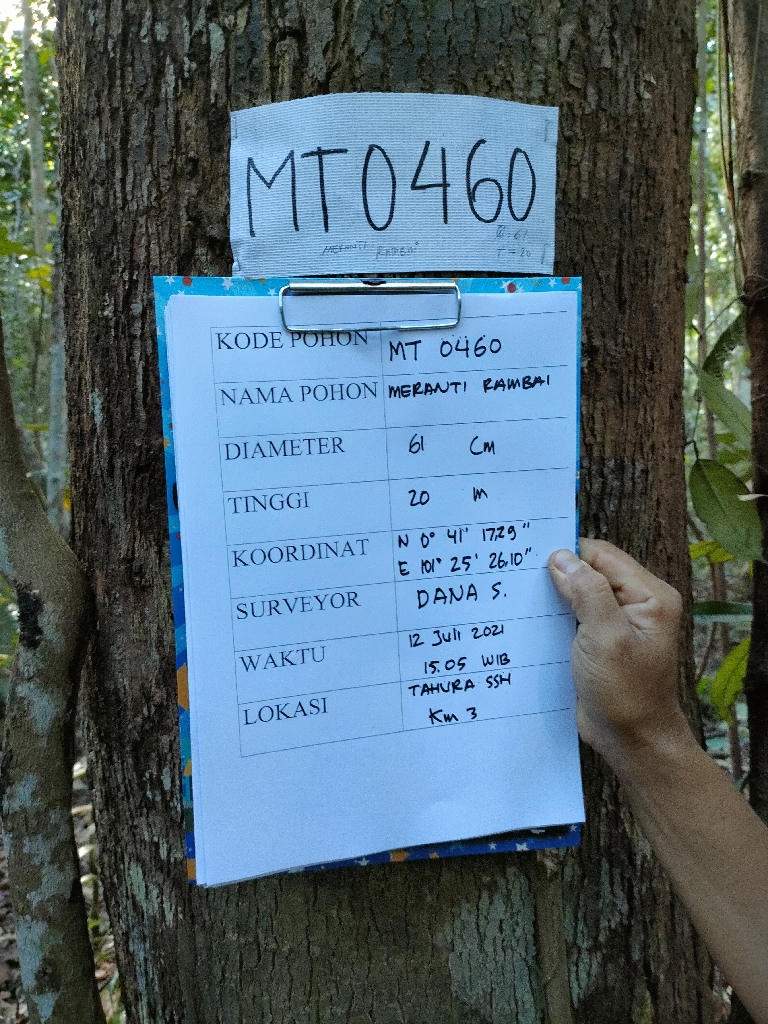 MT0460
MERANTI RAMBAI
T = 20
KODE POHON MT 0460
NAMA POHON MERANTI RAMBAI
DIAMETER 61 Cm
TINGGI 20 m
KOORDINAT N 0° 41' 17.29"
E 101° 25' 26.10"
SURVEYOR DANA S.
WAKTU 12 Juli 2021
15.05 WIB
LOKASI TAHURA SSH
Km 3